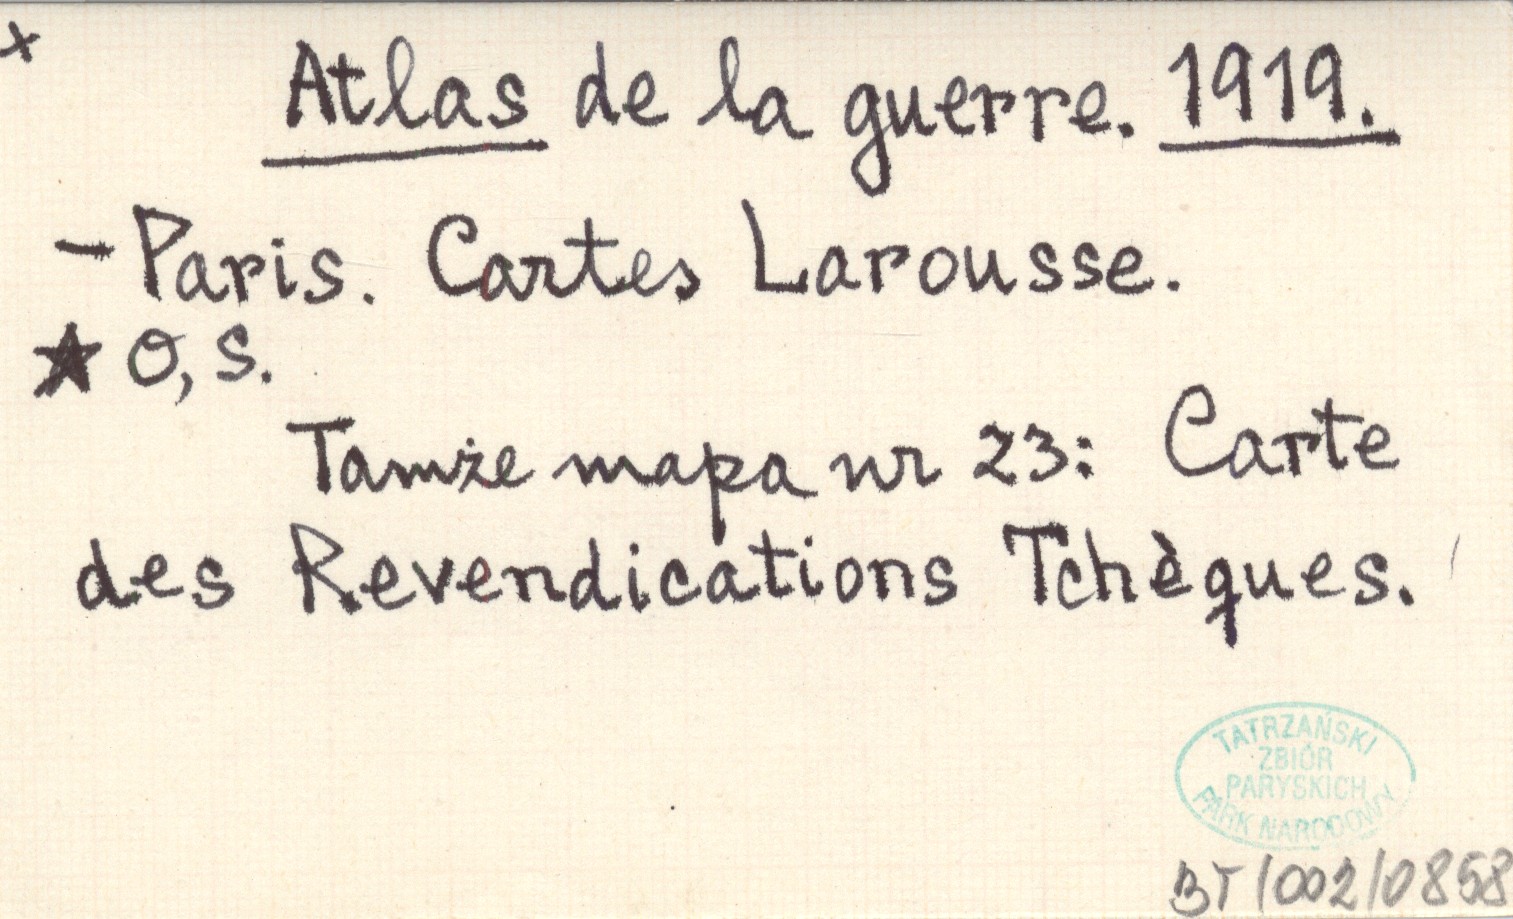 x
Atlas de la guerre. 1919.
- Paris. Cartes Larousse.
★ O, S.
Tamże mapa nr 23: Carte
des Revendications Tchèques.
TATRZAŃSKI
ZBIÓR
PARYSKICH
PARK NARODOWY
BT/002/0858